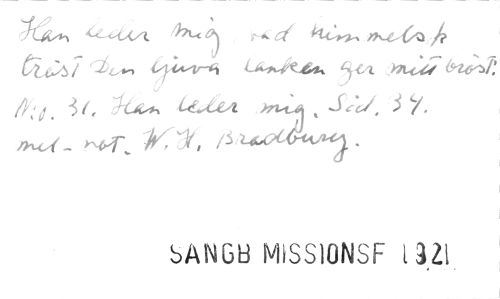 Han leder mig, vad himmelsk
tröst Den ljuva tanken ger mitt bröst.
N:o. 31. Han leder mig. Sid. 34.
mel-not. W. H. Bradbury.
SANGB MISSIONSF 1921